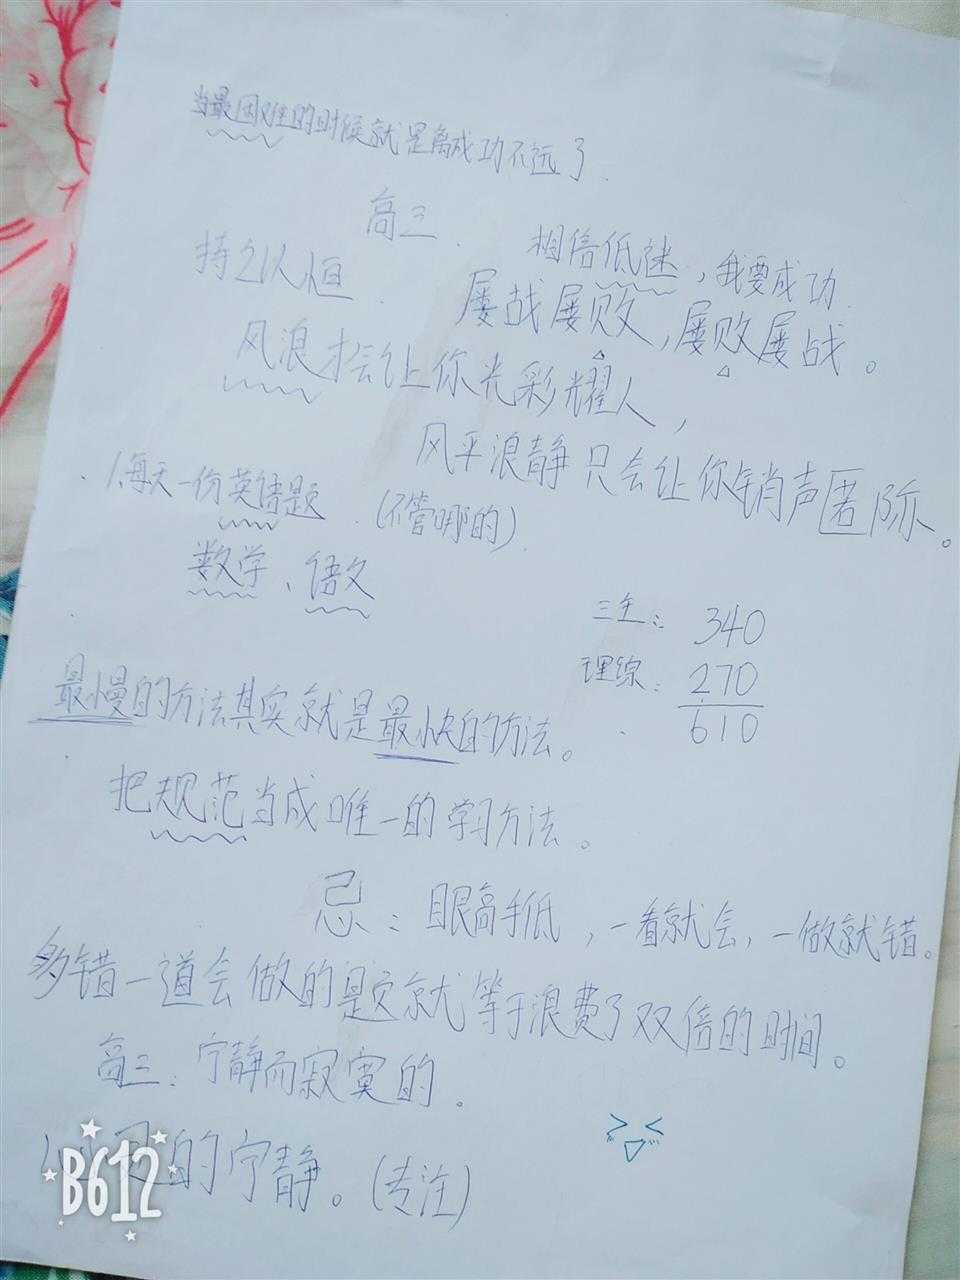 当最困难的时候就是离成功不远了.
高三.
相信低迷,我要成功.
持之以恒.
屡战屡败,屡败屡战。
风浪才会让你光彩耀人,
风平浪静只会让你销声匿际。
1.每天一份英语题.(不管哪的)
数学、语文
三主: 340
理综: 270
610
最慢的方法其实就是最快的方法。
把规范当成唯一的学习方法。
忌:眼高手低,一看就会,一做就错。
多错一道会做的题就等于浪费了双倍的时间。
高三:宁静而寂寞的.
的宁静。(专注)
B612